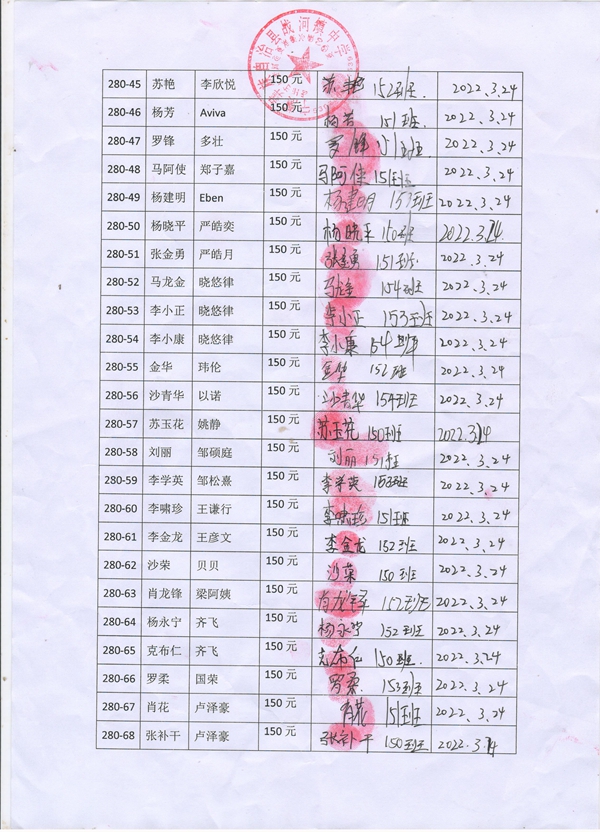 自治县战河镇中学
280-45 苏艳 李欣悦 150 元 苏艳 152班 2022.3.24
280-46 杨芳 Aviva 150 元 杨芳 151班. 2022.3.24
280-47 罗锋 多壮 150 元 罗锋 151班 2022.3.24
280-48 马阿使 郑子嘉 150 元 马阿使 151班 2022.3.24
280-49 杨建明 Eben 150 元 杨建明 153班 2022.3.24
280-50 杨晓平 严皓奕 150 元 杨晓平 150班 2022.3.24
280-51 张金勇 严皓月 150 元 张金勇 151班 2022.3.24
280-52 马龙金 晓悠律 150 元 马龙金 154班 2022.3.24
280-53 李小正 晓悠律 150 元 李小正 153班 2022.3.24
280-54 李小康 晓悠律 150 元 李小康 154班 2022.3.24
280-55 金华 玮伦 150 元 金华 152班 2022.3.24
280-56 沙青华 以诺 150 元 沙青华 154班 2022.3.24
280-57 苏玉花 姚静 150 元 苏玉花 150班 2022.3.24
280-58 刘丽 邹硕庭 150 元 刘丽 151班 2022.3.24
280-59 李学英 邹松熹 150 元 李学英 153班 2022.3.24
280-60 李啸珍 王谦行 150 元 李啸珍 151班 2022.3.24
280-61 李金龙 王彦文 150 元 李金龙 152班 2022.3.24
280-62 沙荣 贝贝 150 元 沙荣 150班 2022.3.24
280-63 肖龙锋 梁阿姨 150 元 肖龙锋 152班 2022.3.24
280-64 杨永宁 齐飞 150 元 杨永宁 152班 2022.3.24
280-65 克布仁 齐飞 150 元 克布仁 150班. 2022.3.24
280-66 罗柔 国荣 150 元 罗柔 153班 2022.3.24
280-67 肖花 卢泽豪 150 元 肖花 151班 2022.3.24
280-68 张补干 卢泽豪 150 元 张补干 150班 2022.3.24